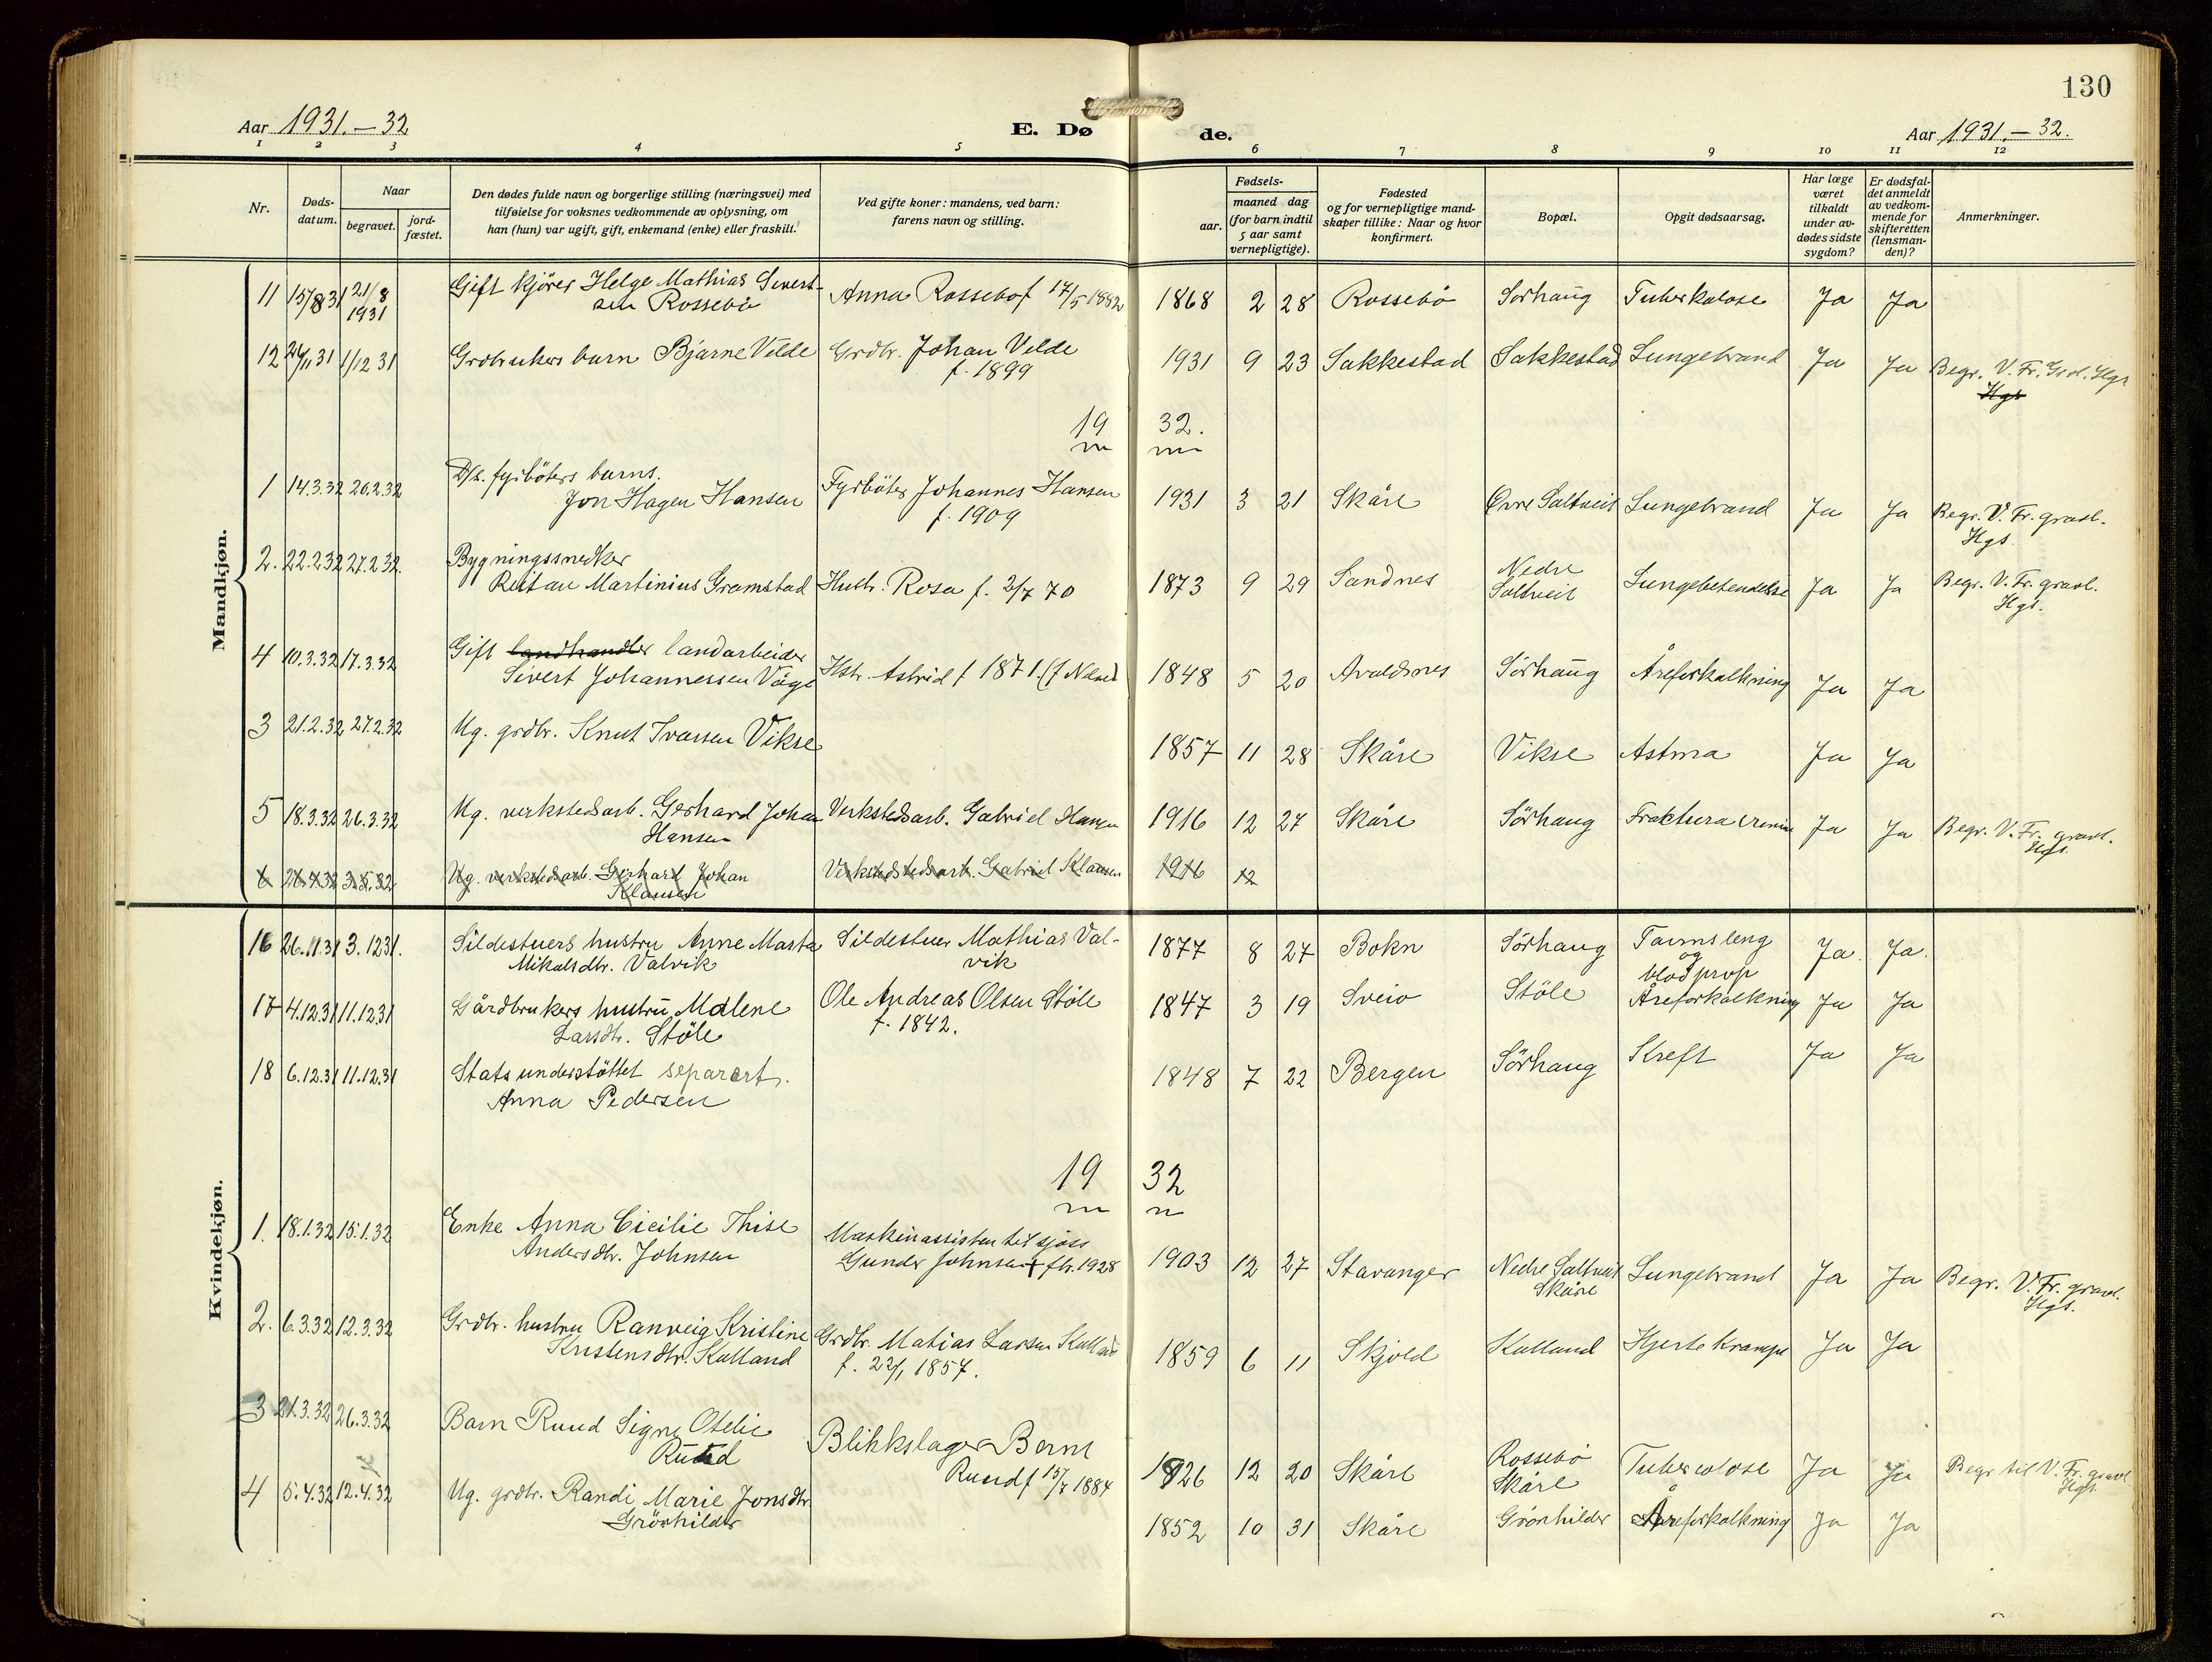 130
Aar 1931.–32
E. Dø
de.
Aar 1931.–32.
1 2 3 4 5 6 7 8 9 10 11 12
Nr.
Døds-
datum.
Naar
begravet.
jord-
fæstet.
Den dødes fulde navn og borgerlige stilling (næringsvei) med
tilføielse for voksnes vedkommende av oplysning, om
han (hun) var ugift, gift, enkemand (enke) eller fraskilt.
Ved gifte koner: mandens, ved barn:
farens navn og stilling.
Fødsels-
aar.
maaned dag
(for barn indtil
5 aar samt
vernepligtige).
Fødested
og for vernepligtige mand-
skaper tillike: Naar og hvor
konfirmert.
Bopæl.
Opgit dødsaarsag.
Har læge
været
tilkaldt
under av-
dødes sidste
sygdom?
Er dødsfal-
det anmeldt
av vedkom-
mende for
skifteretten
(lensman-
den)?
Anmerkninger.
Mandkjøn.
11 15/8 31 21/8 Gift kjører Helge Mathias Sivert- Anna Rossebø f 14/5 1882 1868 2 28 Rossebø Sørhaug Tuberkulose Ja Ja
1931 sen Rossebø
12 24/11 31 1/12 31 Grdbrukers barn Bjarne Velde Grdbr. Johan Velde 1931 9 23 Sakkestad Sakkestad Lungebrand Ja Ja Begr. V. Fr. Grvl. Hgs
f. 1899 Hgs
19 32.
1 14.3.32 20.2.32 D/s. fyrbøters barns. Fyrbøter Johannes Hansen 1931 3 21 Skåre Øvre Saltveit Lungebrand Ja Ja Begr. V. Fr. gravl.
Jon Hagen Hansen f. 1909 Hgs.
2. 22.2 32 27.2 32. Bygningssnedker
Reitan Martinius Gramstad Hustr. Rosa f. 2/7 70 1873 9 29 Sandnes Nedre
Saltveit Lungebetendelse Ja Ja Begr. V. Fr. gravl.
Hgs.
4 10.3.32 17.3.32 Gift landhandler landarbeider
Sivert Johannessen Våge Hstr. Astrid f 1871. 1848 5 20 Avaldsnes Sørhaug Åreforkalkning Ja Ja
3 21.2.32 27.2.32 Ug. grdbr. Knut Ivarsen Vikse 1857 11 28 Skåre Vikse Astma Ja Ja
5 18.3.32 26.3.32 Ug. verkstedsarb. Gerhard Johan Verkstedsarb. Gabriel Hansen 1916 12 27 Skåre Sørhaug Fraktura Ja Ja Begr. V. Fr. gravl.
Hansen Hgs.
6 26.4 32 3.5.32 Ug. verkstedsarb. Gerhard Johan Verkstedstedsarb. Gabriel Klausen 1916 12
Klausen
Kvindekjøn.
16 26.11.31 3.12 31. Sildestuers hustru Anne Marta Sildestuer Mathias Val- 1877 8 27 Bokn Sørhaug Tarmsleng Ja. Ja.
Mikalsdtr. Valvik vik og
blodprop
17 4.12.31 11.12.31 Gårdbrukers hustru Malene Ole Andreas Olsen Støle 1847 3 19 Sveio Støle Åreforkalkning Ja Ja
Larsdtr. Støle f. 1842.
18 6.12.31 11.12.31 Statsunderstøttet separert. 1848 7 22 Bergen Sørhaug Kreft Ja Ja
Anna Pedersen
19 32
1. 18.1.32 15.1.32 Enke Anna Cicilie Thise Maskinassisten til sjøss
Andersdtr. Johnsen Gunder Johnsen 1928 1903 12 27 Stavanger Nedre Saltveit Lungebrand Ja Ja Begr. V. Fr. gravl.
Skåre Hgs.
2. 6.3.32 12.3.32 Grdbr. hustru Ranveig Kristine Grdbr. Matias Larsen Kalland 1859 6 11 Skjold Kalland Hjertekrampe Ja Ja
Kristensdtr. Kalland f. 22/1 1857.
3 21.3.32 26.3.32 Barn Ruud Signe Otelie Blikkslager Bernt
Ruud Ruud f 15/7 1884 1926 12 20 Skåre Rossebø
Skåre Tuberculose Ja Ja Begr til V. Fr. gravl
Hgs.
4 5.4.32 12.4.32 Ug. grdbr. Randi Marie Jonsdtr
Grønhilder 1852 10 31 Skåre Grønhilder Åreforkalkning Ja Ja